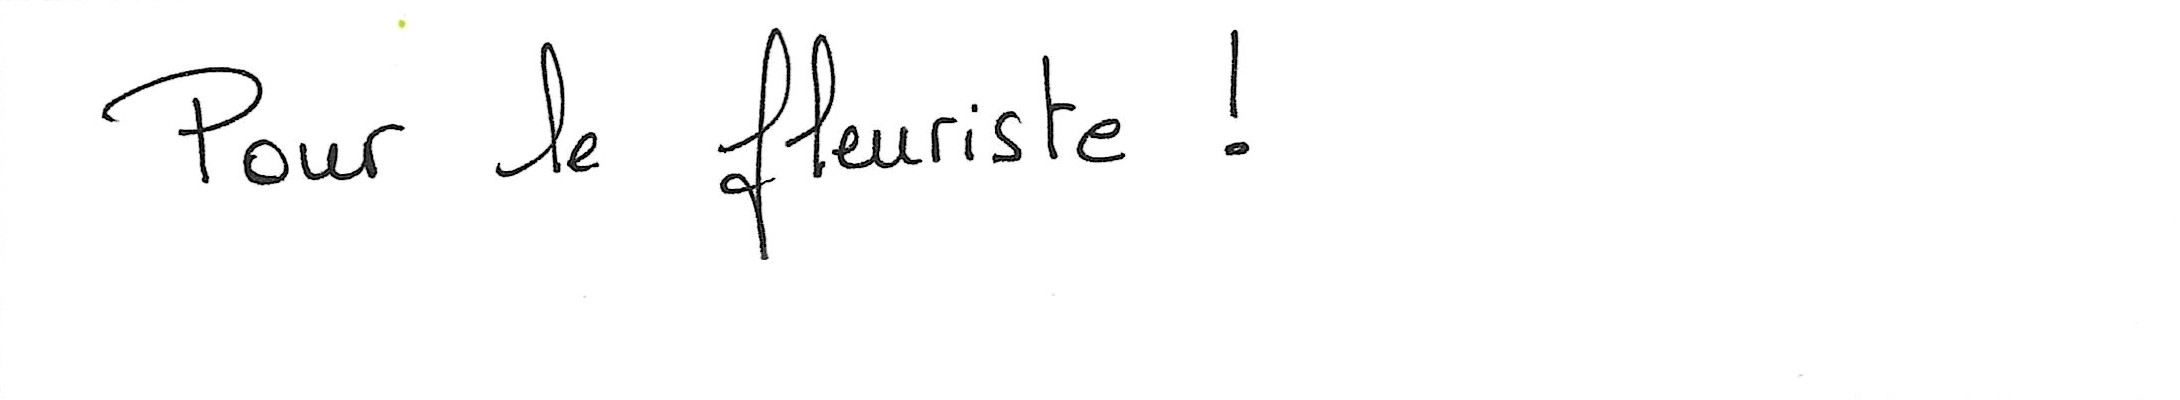 Pour le fleuriste !